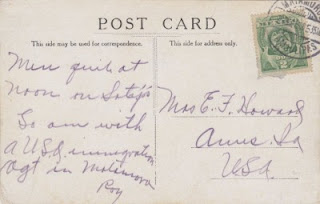 POST CARD
This side may be used for correspondence.
This side for address only.
Men quit at
Noon on
So am with
A USA immigration
Agt in
Roy
Mrs E. F. Howard
Ames. Ia
USA.
2